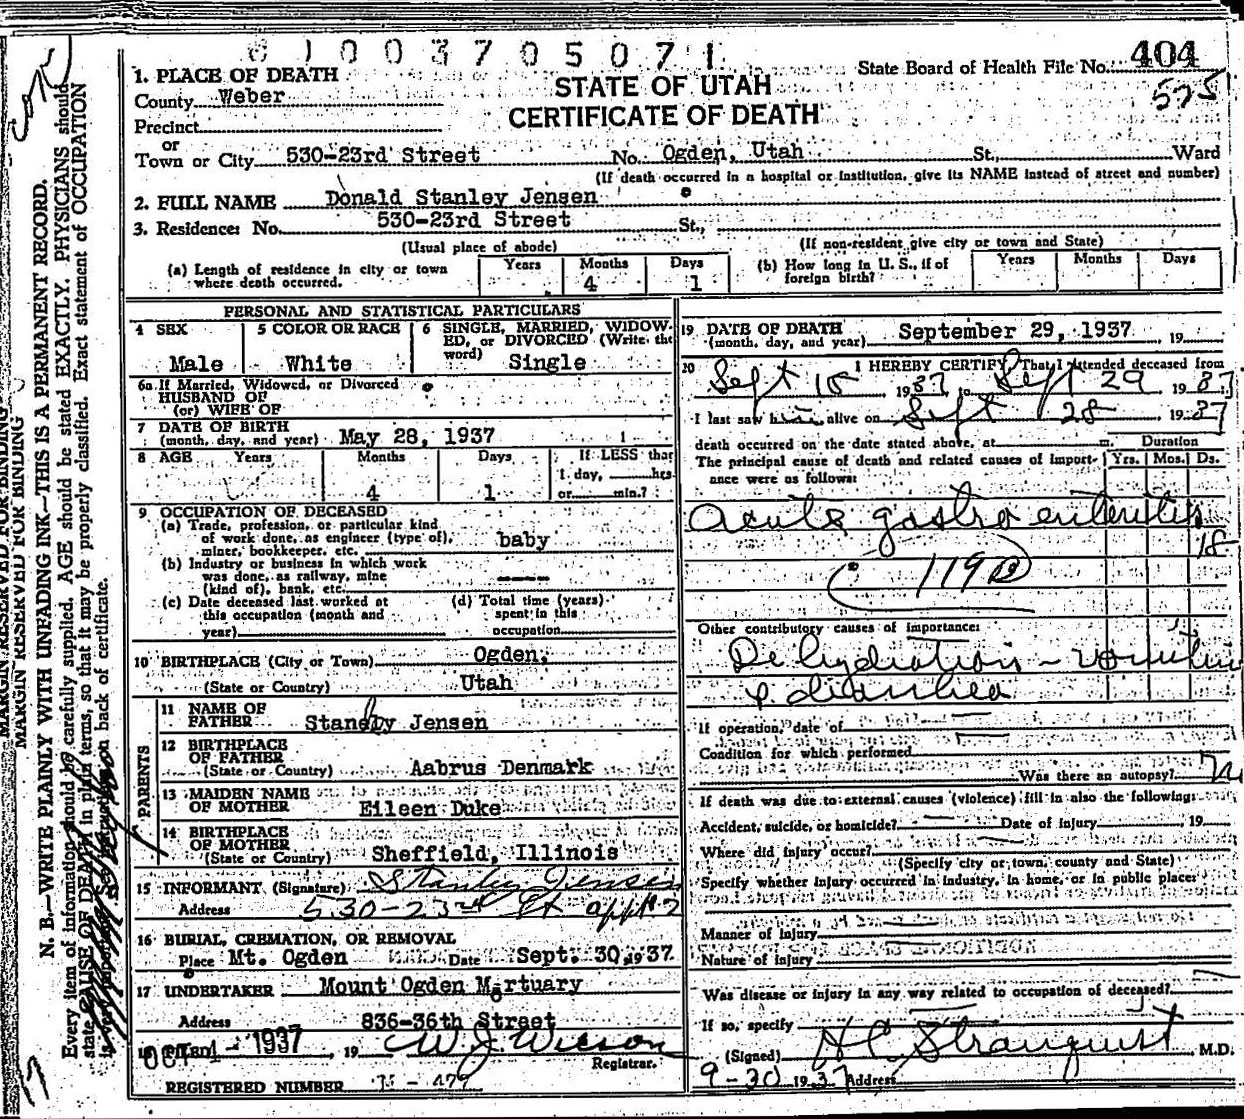 0 1 0 0 3 7 0 5 0 7 1
State Board of Health File No. 404
575
1. PLACE OF DEATH
STATE OF UTAH
County Weber
CERTIFICATE OF DEATH
Precinct
or
Town or City 530-23rd Street No. Ogden, Utah St., Ward
(If death occurred in a hospital or institution, give its NAME instead of street and number)
2. FULL NAME Donald Stanley Jensen
3. Residence: No. 530-23rd Street St.,
(Usual place of abode) (If non-resident give city or town and State)
(a) Length of residence in city or town where death occurred. Years Months 4 Days 1
(b) How long in U. S., if of foreign birth? Years Months Days
PERSONAL AND STATISTICAL PARTICULARS
4 SEX Male
5 COLOR OR RACE White
6 SINGLE, MARRIED, WIDOW-
ED, or DIVORCED (Write the
word) Single
6a If Married, Widowed, or Divorced
HUSBAND OF
(or) WIFE OF
7 DATE OF BIRTH
(month, day, and year) May 28, 1937
8 AGE Years Months Days If LESS than
1 day, hrs.
4 1 or min.?
9 OCCUPATION OF DECEASED
(a) Trade, profession, or particular kind
of work done, as engineer (type of),
miner, bookkeeper, etc. baby
(b) Industry or business in which work
was done, as railway, mine
(kind of), bank, etc.
(c) Date deceased last worked at
this occupation (month and
year)
(d) Total time (years)
spent in this
occupation
10 BIRTHPLACE (City or Town) Ogden,
(State or Country) Utah
PARENTS
11 NAME OF
FATHER Stanely Jensen
12 BIRTHPLACE
OF FATHER
(State or Country) Aabrus Denmark
13 MAIDEN NAME
OF MOTHER Eileen Duke
14 BIRTHPLACE
OF MOTHER
(State or Country) Sheffield, Illinois
15 INFORMANT (Signature) Stanley Jensen
Address 530-23rd St appt 2
16 BURIAL, CREMATION, OR REMOVAL
Place Mt. Ogden Date Sept. 30, 1937
17 UNDERTAKER Mount Ogden Mortuary
Address 836-36th Street
18 FILED OCT 1 - 1937 19 W. J. Wilson
Registrar.
REGISTERED NUMBER
19 DATE OF DEATH
(month, day, and year) September 29, 1937 19
20 I HEREBY CERTIFY, That I attended deceased from
Sept 15 1937, to Sept 29 1937
I last saw him alive on Sept 28 1937
death occurred on the date stated above, at m. Duration
The principal cause of death and related causes of import-
ance were as follows: Yrs. Mos. Ds.
Acute gastro enteritis
15
119
Other contributory causes of importance:
Dehydration - vomiting
& diarrhea
If operation, date of
Condition for which performed
Was there an autopsy? no
If death was due to external causes (violence) fill in also the following:
Accident, suicide, or homicide? Date of injury 19
Where did injury occur?
(Specify city or town, county and State)
Specify whether injury occurred in industry, in home, or in public place:
Manner of injury
Nature of injury
Was disease or injury in any way related to occupation of deceased?
If so, specify
(Signed) H C Stranquist, M.D.
9-30 1937 Address
MARGIN RESERVED FOR BINDING
MARGIN RESERVED FOR BINDING
N. B.—WRITE PLAINLY WITH UNFADING INK—THIS IS A PERMANENT RECORD.
Every item of information should be carefully supplied. AGE should be stated EXACTLY. PHYSICIANS should
state CAUSE OF DEATH in plain terms, so that it may be properly classified. Exact statement of OCCUPATION
is very important. See instructions on back of certificate.